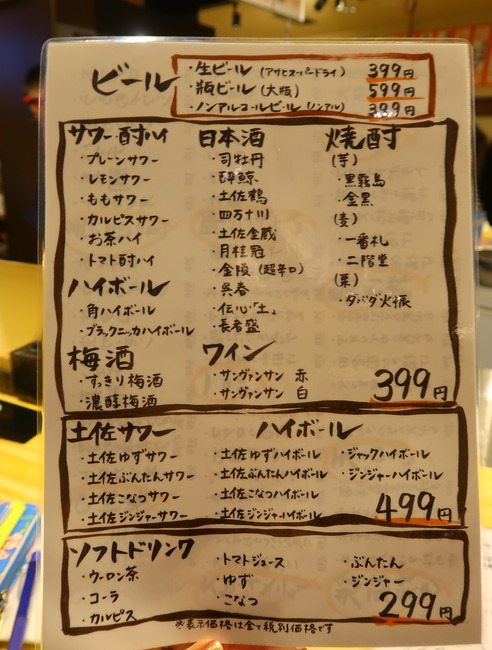 ビール
・生ビール (アサヒスーパードライ) 399円
・瓶ビール (大瓶) 599円
・ノンアルコールビール (ノンアル) 399円
サワー・酎ハイ
・プレーンサワー
・レモンサワー
・ももサワー
・カルピスサワー
・お茶ハイ
・トマト酎ハイ
ハイボール
・角ハイボール
・ブラックニッカハイボール
梅酒
・すっきり梅酒
・濃醇梅酒
日本酒
・司牡丹
・酔鯨
・土佐鶴
・四万十川
・土佐金蔵
・月桂冠
・金陵 (超辛口)
・呉春
・伝心「土」
・長者盛
ワイン
・サンヴァンサン 赤
・サンヴァンサン 白
焼酎
(芋)
・黒霧島
・金黒
(麦)
・一番札
・二階堂
(栗)
・ダバダ火振
399円
土佐サワー
・土佐ゆずサワー
・土佐ぶんたんサワー
・土佐こなつサワー
・土佐ジンジャーサワー
ハイボール
・土佐ゆずハイボール
・土佐ぶんたんハイボール
・土佐こなつハイボール
・土佐ジンジャーハイボール
・ジャックハイボール
・ジンジャーハイボール
499円
ソフトドリンク
・ウーロン茶
・コーラ
・カルピス
・トマトジュース
・ゆず
・こなつ
・ぶんたん
・ジンジャー
299円
※表示価格は全て税別価格です